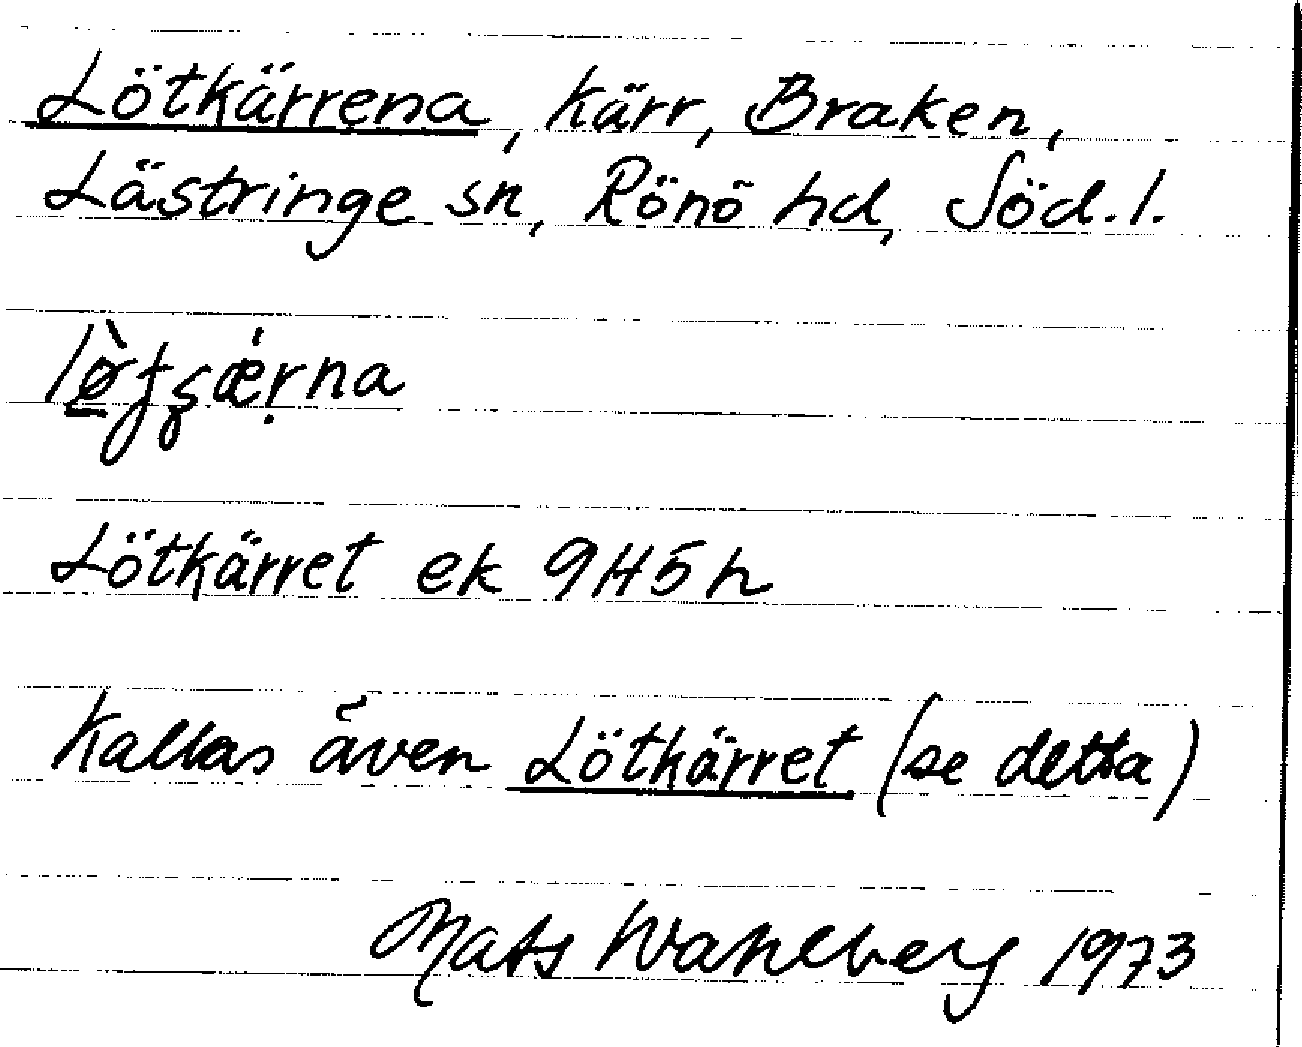 Lötkärrena, kärr, Braken,
Lästringe sn, Rönö hd, Söd. l.
Lötkärret ek 9H5h
Kallas även Lötkärret (se detta)
Mats Wahlberg 1973